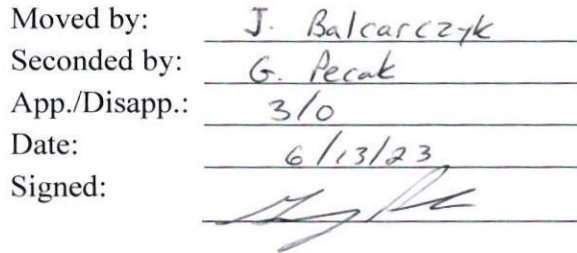 Moved by: J. Balcarczyk
Seconded by: G. Pecak
App./Disapp.: 3/0
Date: 6/13/23
Signed: